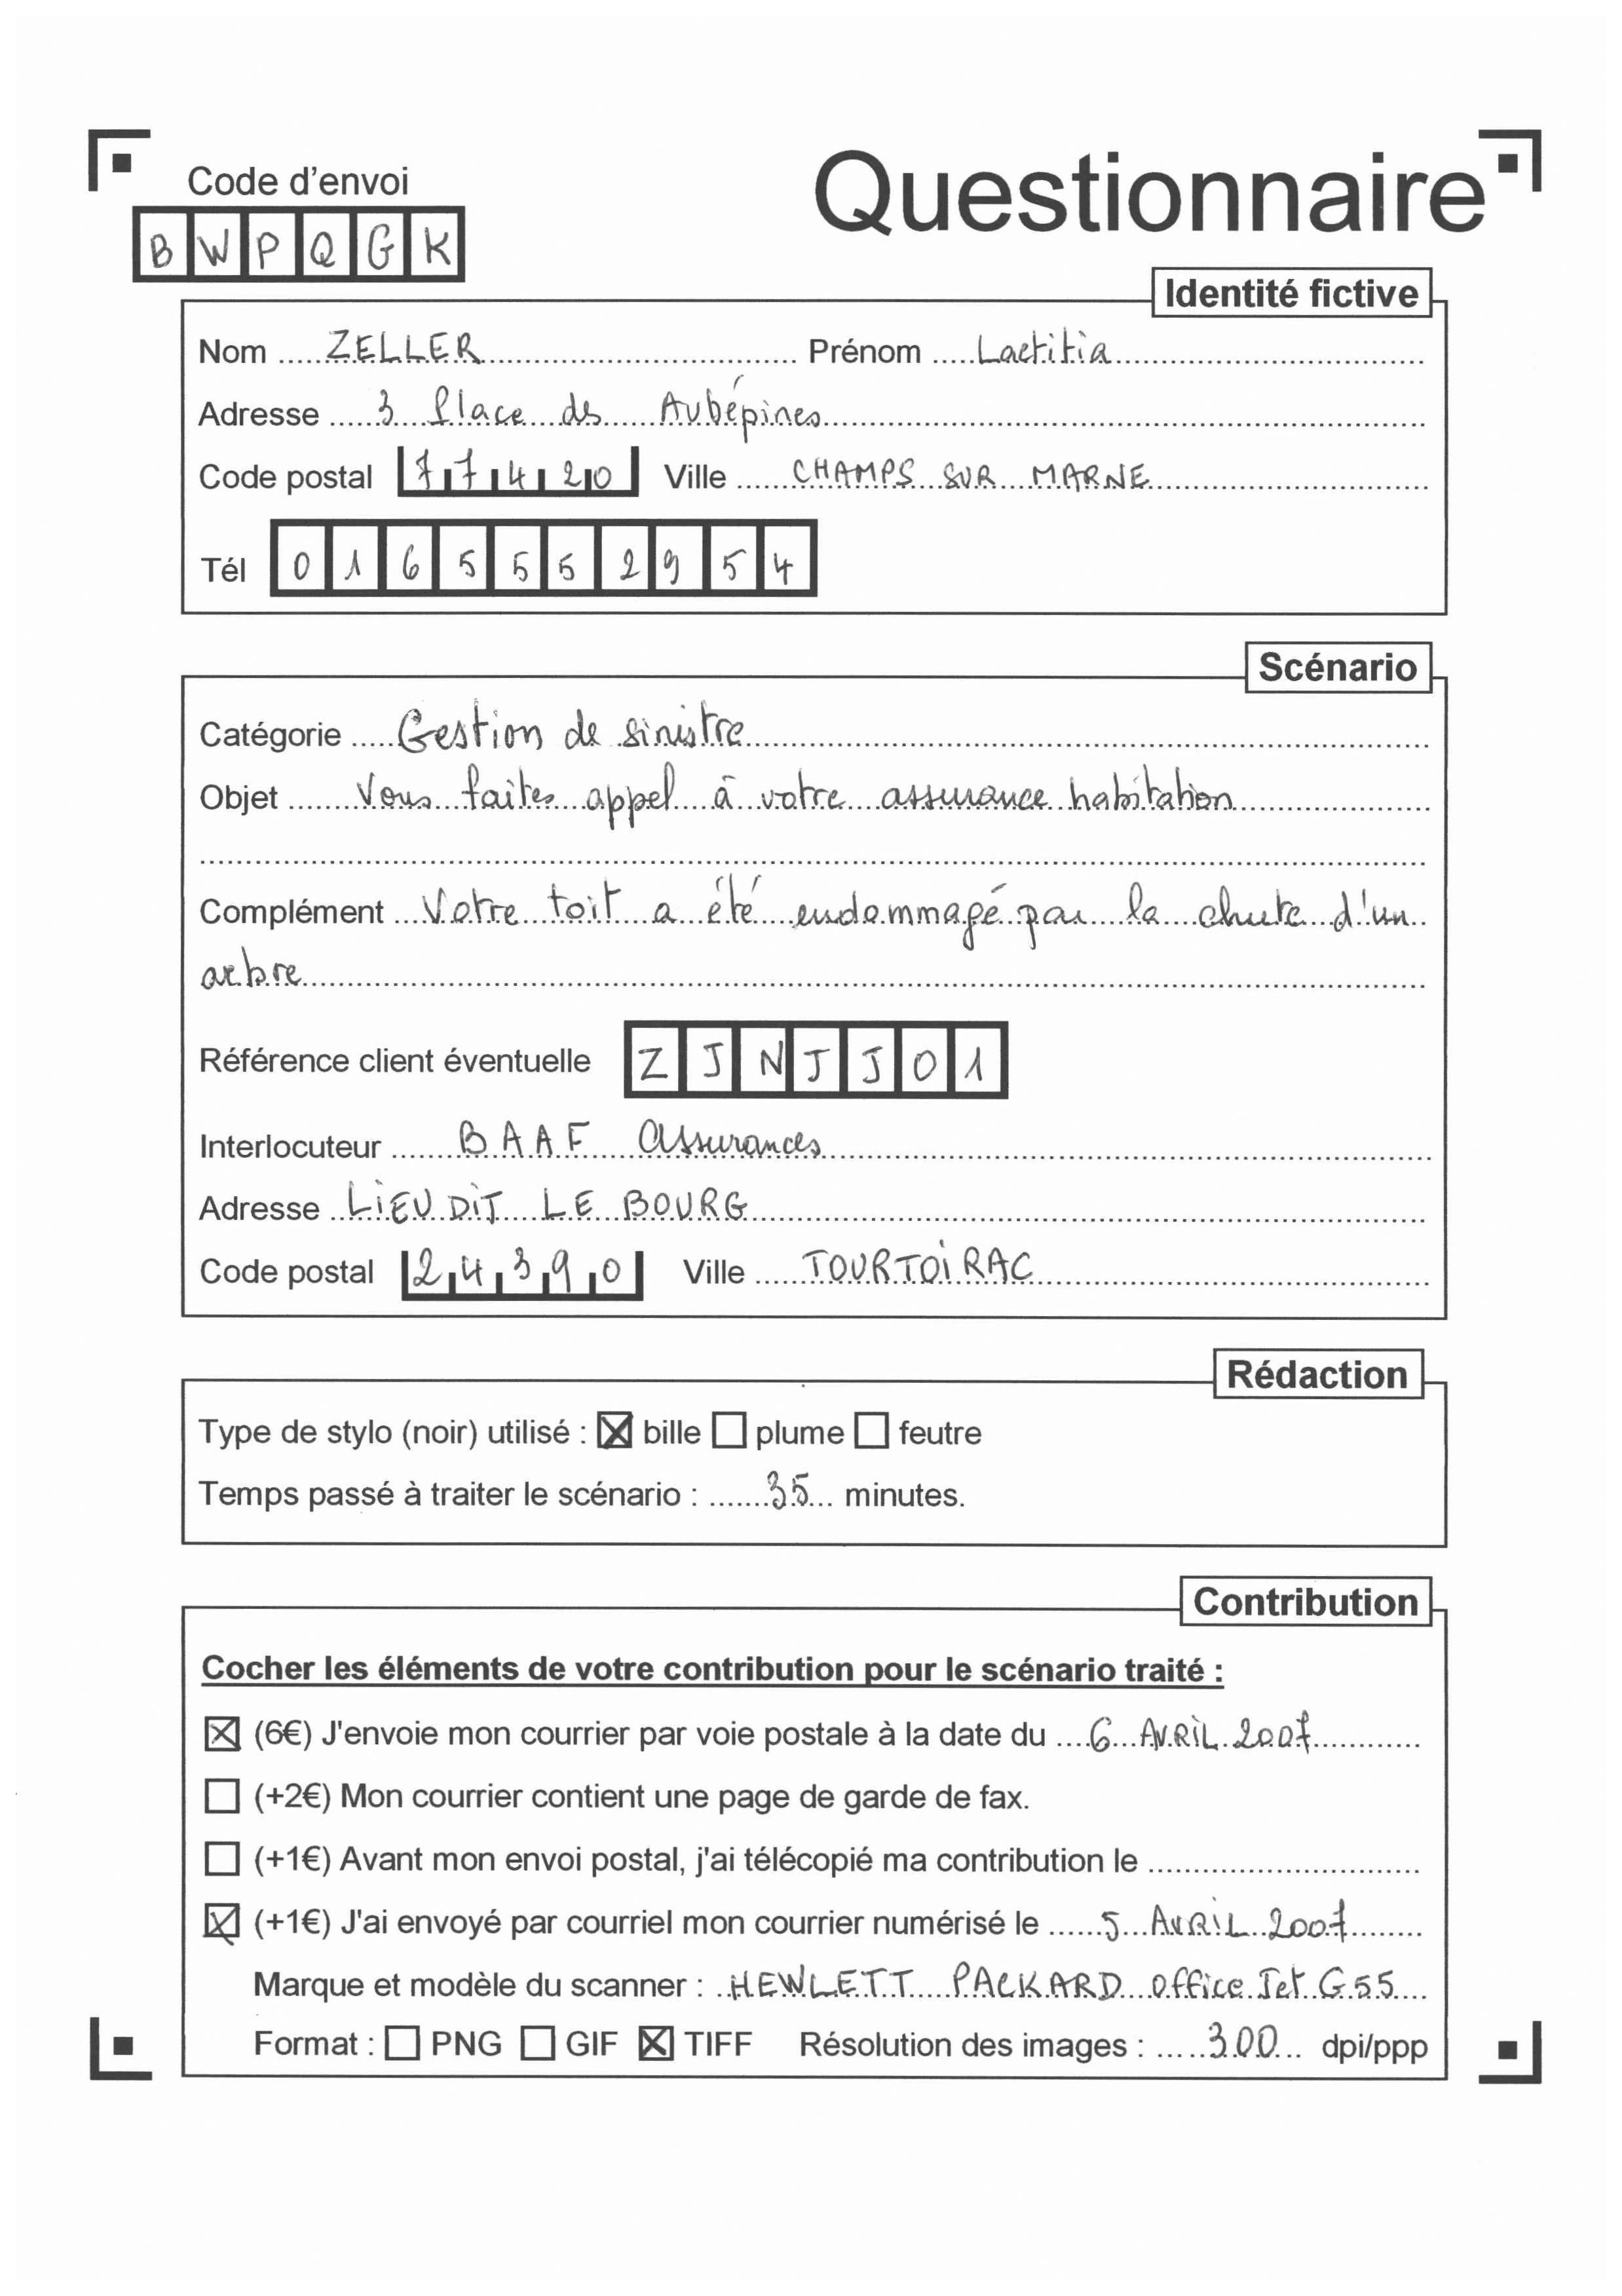 Code d'envoi
Questionnaire
B W P Q G K
Identité fictive
Nom ZELLER Prénom Laetitia
Adresse 3 Place des Aubépines
Code postal 77420 Ville CHAMPS SUR MARNE
Tél 0165552954
Scénario
Catégorie Gestion de sinistre
Objet Vous faites appel à votre assurance habitation
Complément Votre toit a été endommagé par la chute d'un
arbre
Référence client éventuelle ZJNJJ01
Interlocuteur BAAF assurances
Adresse LIEU DIT LE BOURG
Code postal 24390 Ville TOURTOIRAC
Rédaction
Type de stylo (noir) utilisé : ☒ bille ☐ plume ☐ feutre
Temps passé à traiter le scénario : 35 minutes.
Contribution
Cocher les éléments de votre contribution pour le scénario traité :
☒ (6€) J'envoie mon courrier par voie postale à la date du 6 AVRIL 2007
☐ (+2€) Mon courrier contient une page de garde de fax.
☐ (+1€) Avant mon envoi postal, j'ai télécopié ma contribution le
☒ (+1€) J'ai envoyé par courriel mon courrier numérisé le 5 AVRIL 2007
Marque et modèle du scanner : HEWLETT PACKARD office Jet G55
Format : ☐ PNG ☐ GIF ☒ TIFF Résolution des images : 300 dpi/ppp